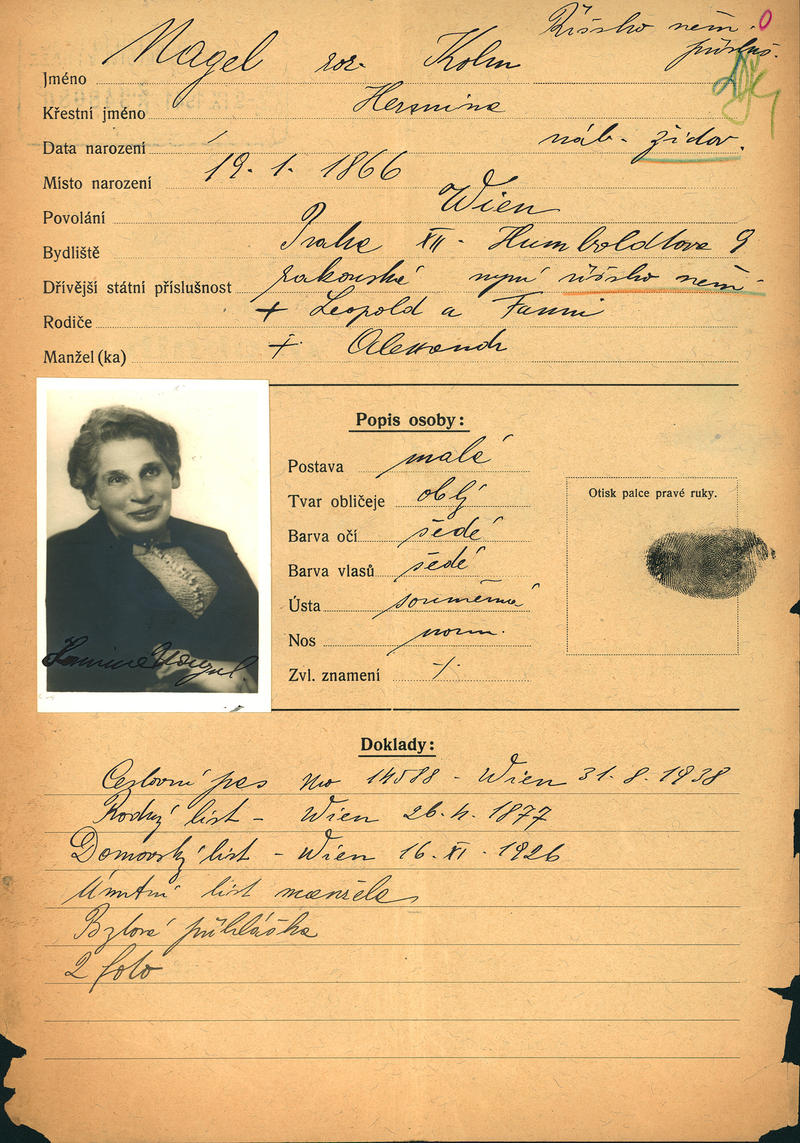 Říšsko něm. 0
přísluš.
Jméno Nagel roz. Kolm
Křestní jméno Hermina
náb. židov.
Data narození 19. 1. 1866
Místo narození Wien
Povolání
Bydliště Praha XII - Humboldtova 9
Dřívější státní příslušnost rakouská nyní říšsko něm.
Rodiče + Leopold a Fanni
Manžel (ka) +
Popis osoby:
Postava malá
Tvar obličeje oblý
Barva očí šedé
Barva vlasů šedé
Ústa souměrná
Nos norm.
Zvl. znamení -/-
Otisk palce pravé ruky.
Doklady:
Cestovní pas No 14588 - Wien 31. 8. 1938
Rodný list - Wien 1877
Domovský list - Wien 16. XI. 1926
Úmrtní list manžela
Bytová přihláška
2 foto